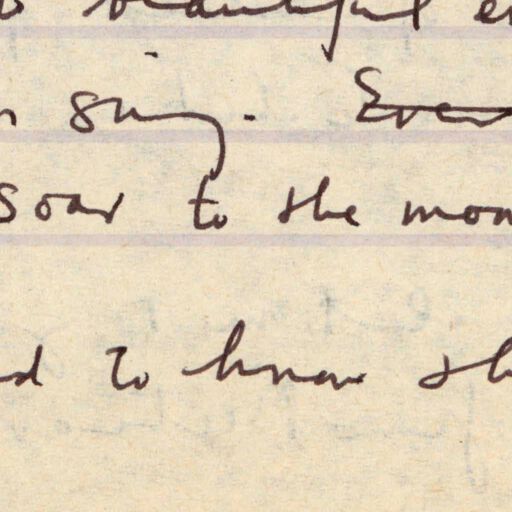 beautiful
sing. Even
soar to the
to know